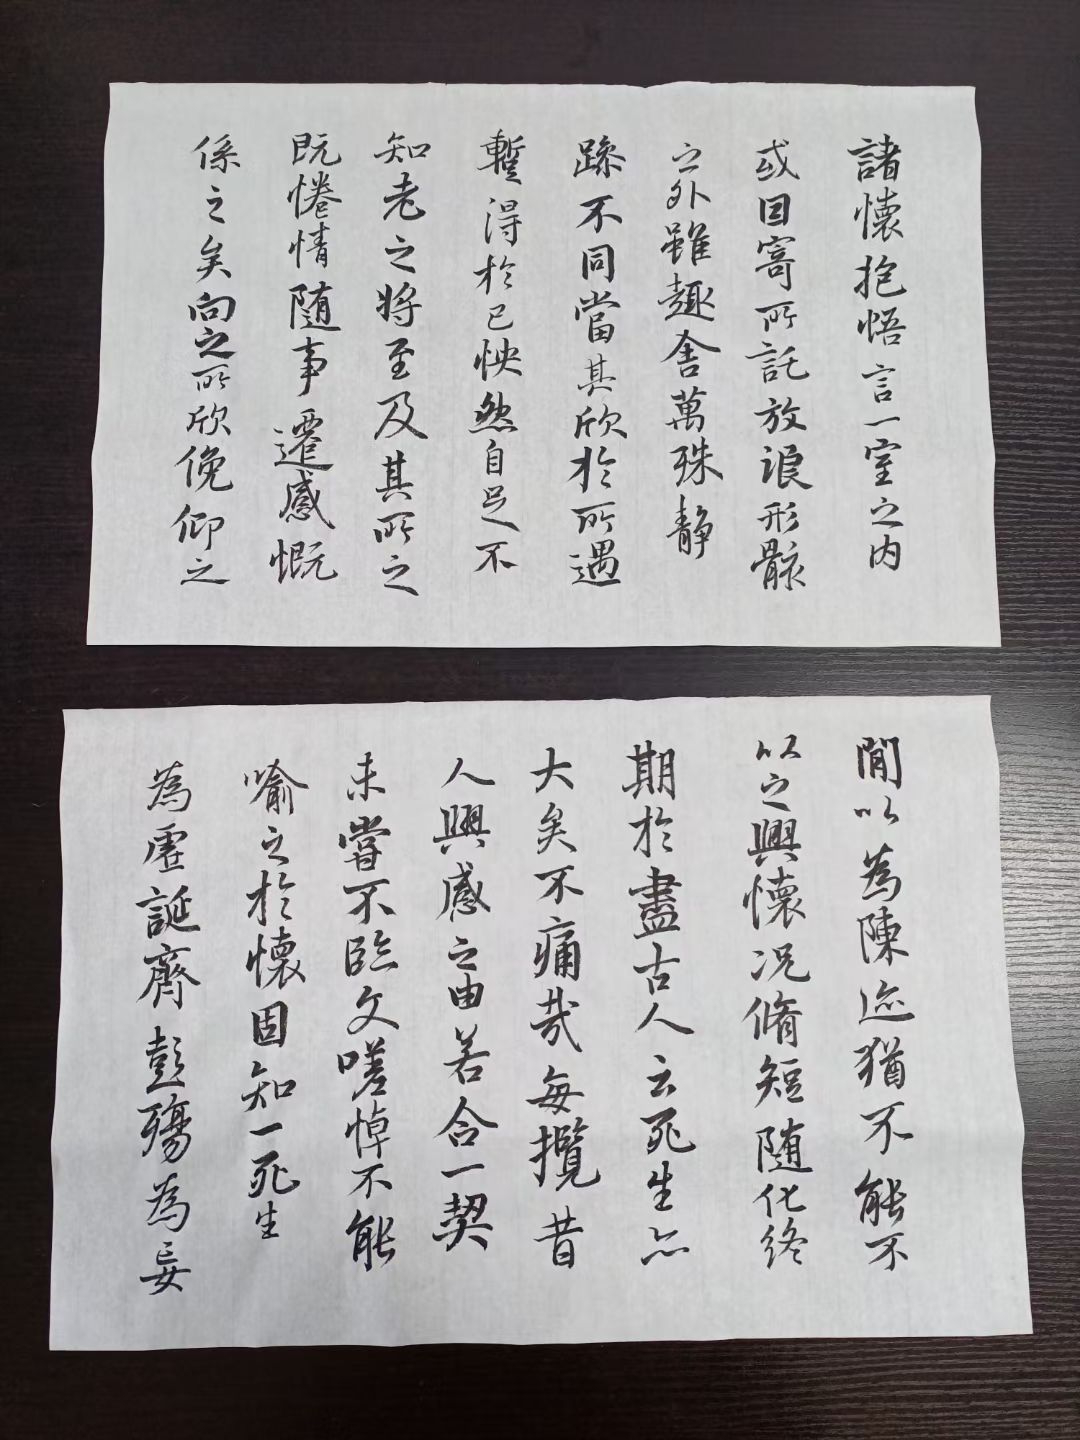 諸懷抱悟言一室之内
或因寄所託放浪形骸
之外雖趣舍萬殊静
躁不同當其欣於所遇
蹔得於己怏然自足不
知老之將至及其所之
既惓情随事遷感慨
係之矣向之所欣俛仰之
閒以為陳迹猶不能不
以之興懷况脩短随化終
期於盡古人云死生亦
大矣不痛哉每攬昔
人興感之由若合一契
未嘗不臨文嗟悼不能
喻之於懷固知一死生
為虛誕齊彭殤為妄